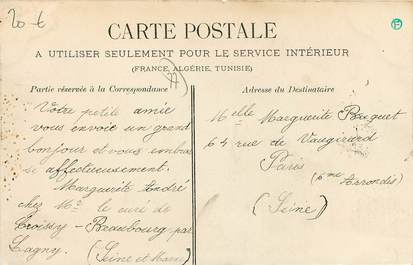 20 €
CARTE POSTALE
A UTILISER SEULEMENT POUR LE SERVICE INTÉRIEUR
(FRANCE, ALGÉRIE, TUNISIE)
Partie réservée à la Correspondance
Adresse du Destinataire
Votre petite amie
vous envoie un grand
bonjour et vous embrasse
affectueusement.
Marguerite André
chez Mr le curé de
Croissy-Beaubourg par
Lagny. (Seine et Marne)
Melle Marguerite
64 rue de Vaugirard
Paris
(6me Arrondis)
(Seine)